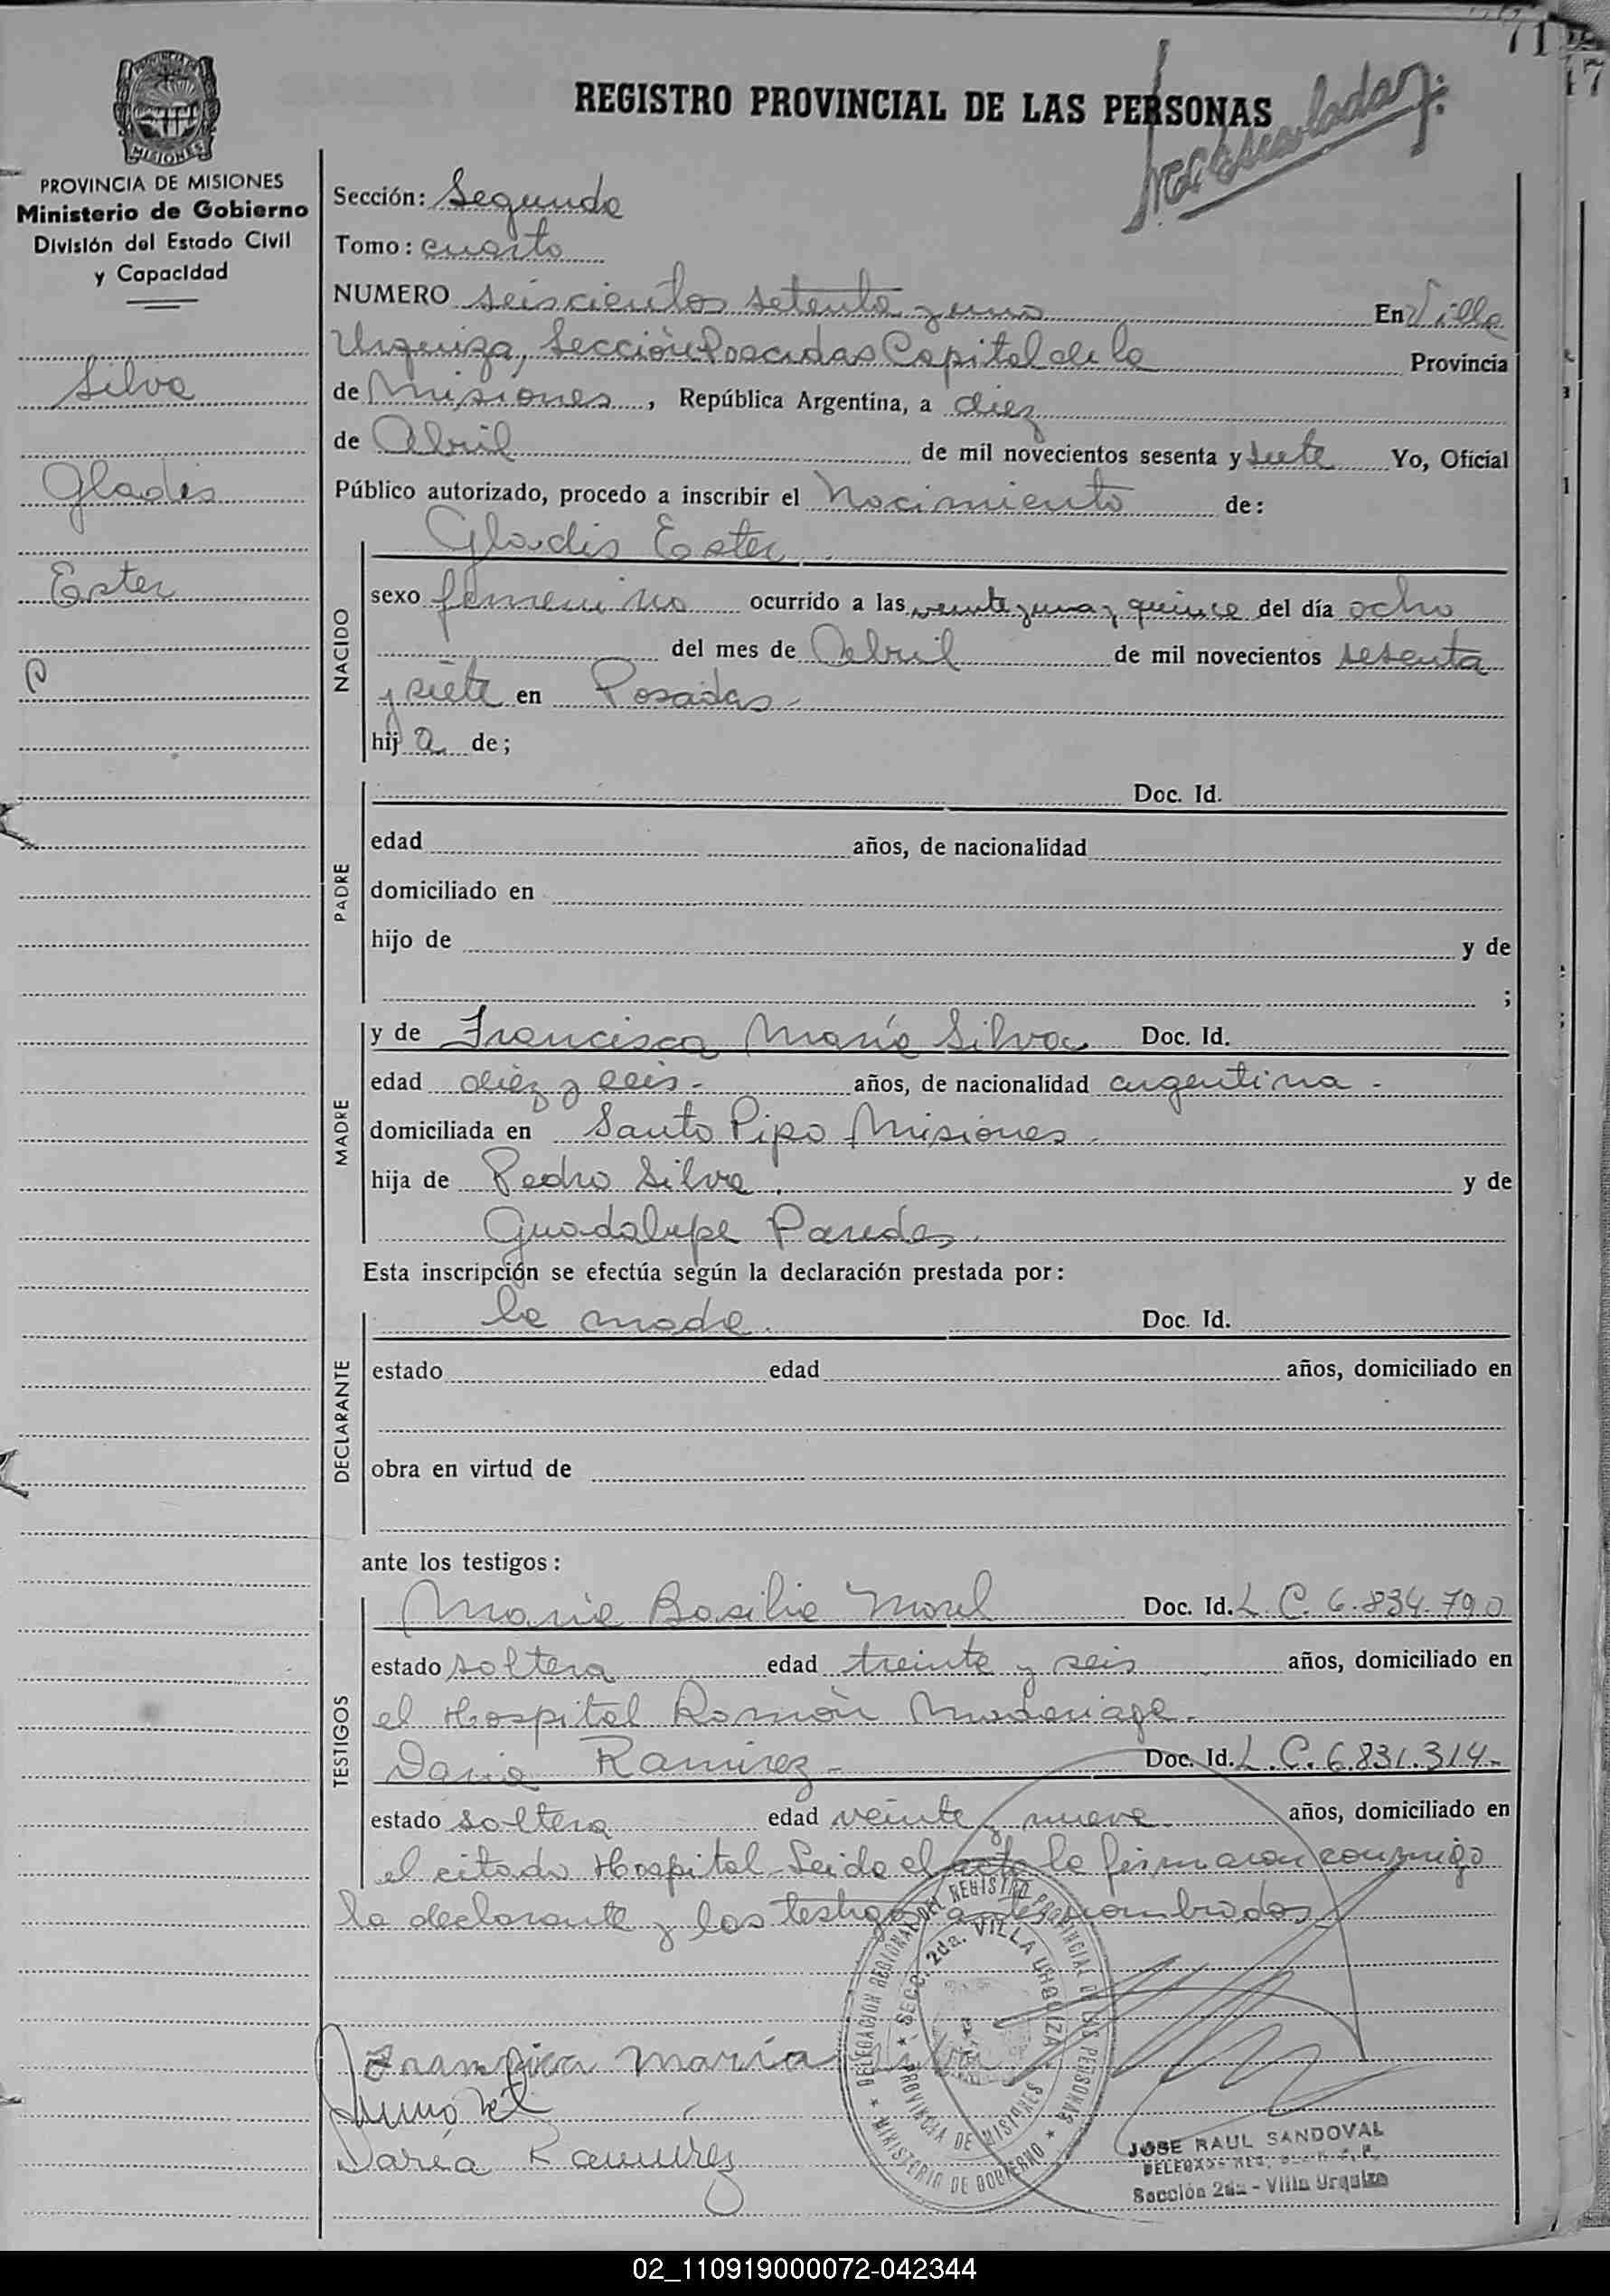 71
47
REGISTRO PROVINCIAL DE LAS PERSONAS
MISIONES
PROVINCIA DE MISIONES
Ministerio de Gobierno
División del Estado Civil
y Capacidad
Silva
Gladis
Ester
Sección: Segunda
Tomo: cuarto
NUMERO seiscientos setenta y uno En Villa
Urquiza, Sección Posadas Capital de la Provincia
de Misiones, República Argentina, a diez
de Abril de mil novecientos sesenta y siete Yo, Oficial
Público autorizado, procedo a inscribir el Nacimiento de:
Gladis Ester
NACIDO
sexo femenino ocurrido a las veinte y una y quince del día ocho
del mes de Abril de mil novecientos sesenta
y siete en Posadas -
hija de;
PADRE
Doc. Id.
edad años, de nacionalidad
domiciliado en
hijo de y de
;
MADRE
y de Francisca María Silva Doc. Id.
edad diez y seis - años, de nacionalidad argentina -
domiciliada en Santo Pipo Misiones -
hija de Pedro Silva y de
Guadalupe Paredes.
Esta inscripción se efectúa según la declaración prestada por:
DECLARANTE
la madre. Doc. Id.
estado edad años, domiciliado en
obra en virtud de
ante los testigos:
TESTIGOS
María Basilia Morel Doc. Id. L. C. 6.834.790
estado soltera edad treinta y seis años, domiciliado en
el Hospital Ramón Madariaga -
Daria Ramirez - Doc. Id. L. C. 6.831.314 -
estado soltera edad veinte y nueve años, domiciliado en
el citado Hospital - Leida el acta la firmaron conmigo
la declarante y los testigos antes nombrados
DELEGACION REGIONAL DEL REGISTRO PROVINCIAL DE LAS PERSONAS
MINISTERIO DE GOBIERNO
SECC. 2da. VILLA URQUIZA
PROVINCIA DE MISIONES
María
Daria Ramirez
JOSE RAUL SANDOVAL
Sección 2da - Villa Urquiza
02_110919000072-042344